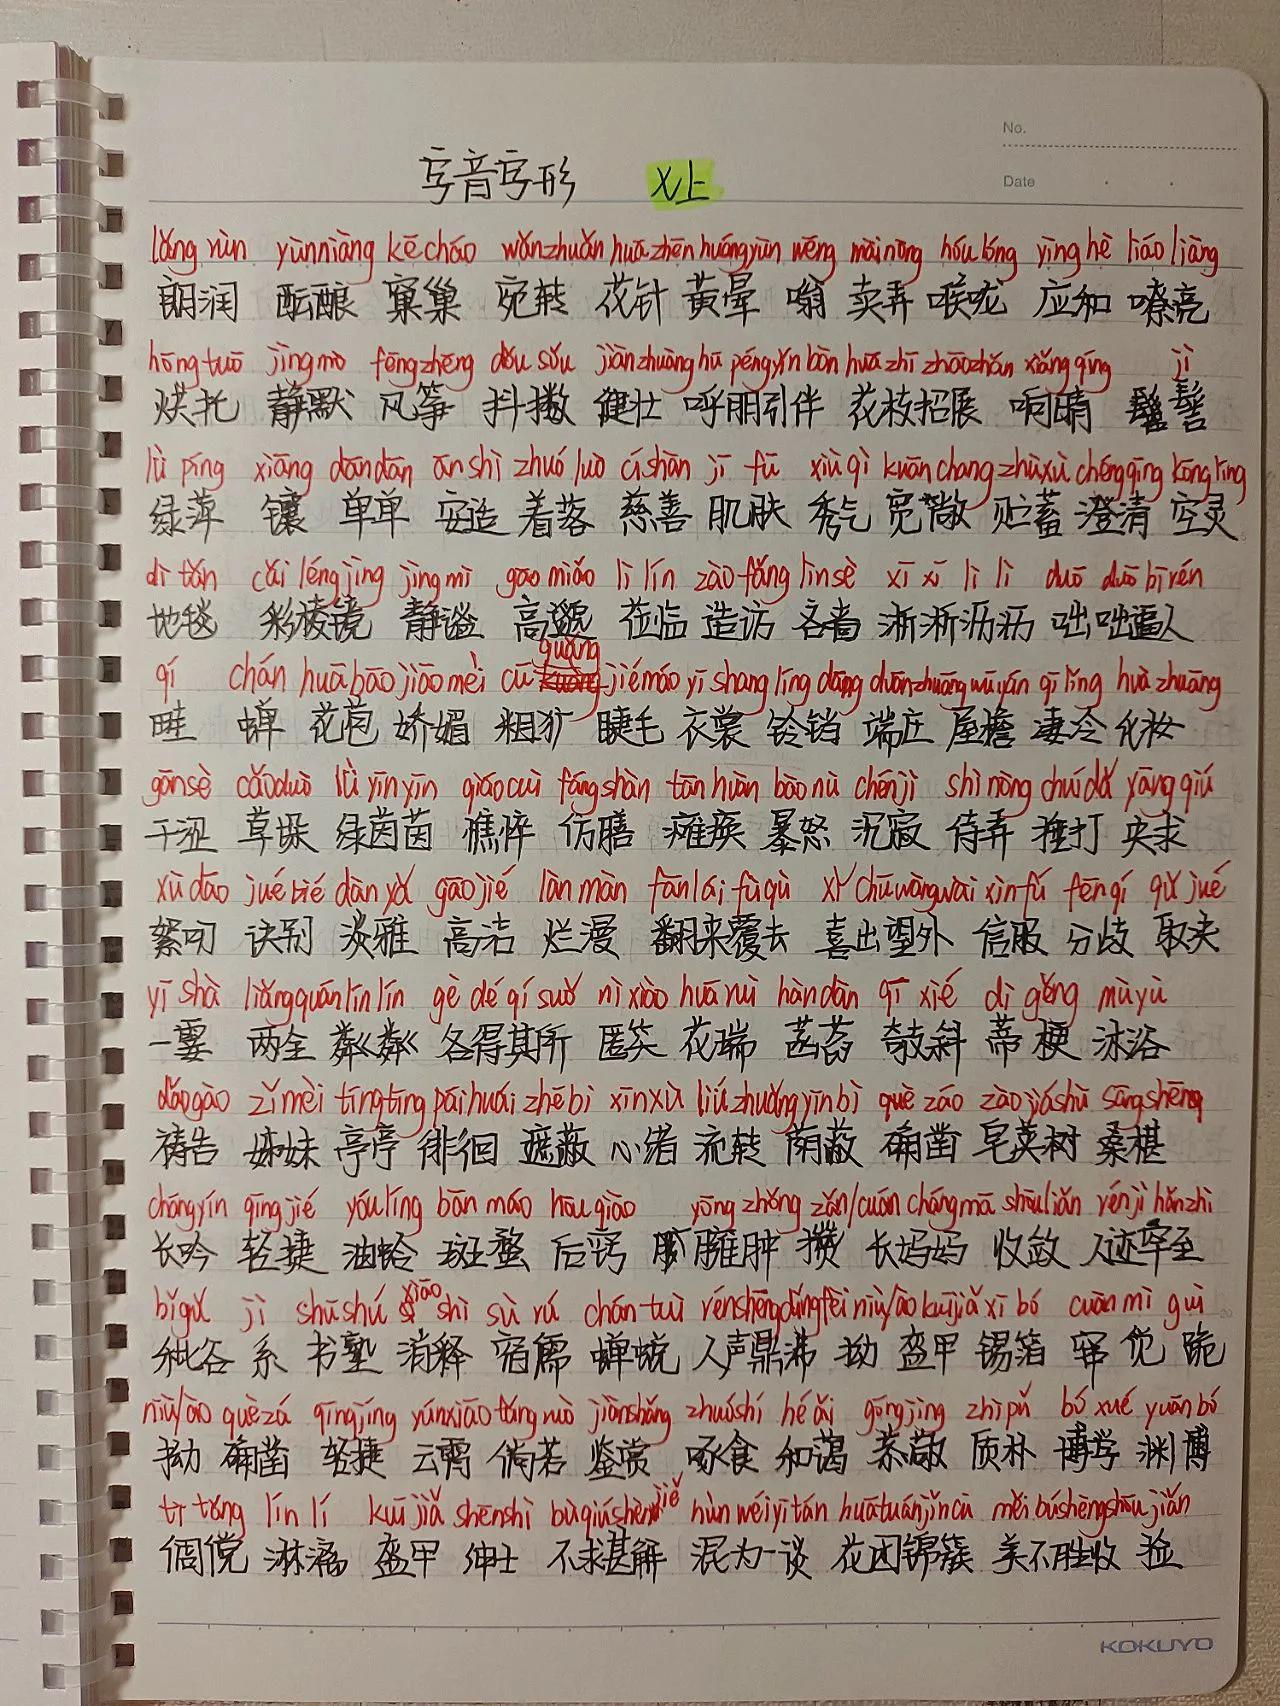 No.
字音字形 乂上
Date
lǎng rùn yùn niàng kē cháo wǎn zhuǎn huā zhēn huáng yùn wēng mài nòng hóu lóng yìng hè liáo liàng
朗润 酝酿 窠巢 宛转 花针 黄晕 嗡 卖弄 喉咙 应和 嘹亮
hōng tuō jìng mò fēng zhēng dǒu sǒu jiàn zhuàng hū péng yǐn bàn huā zhī zhāo zhǎn xiǎng qíng jì
烘托 静默 风筝 抖擞 健壮 呼朋引伴 花枝招展 响晴 髻
lǜ píng xiāng dān dān ān shì zhuó luò cí shàn jī fū xiù qì kuān chang zhù xù chéng qīng kōng líng
绿萍 镶 单单 安适 着落 慈善 肌肤 秀气 宽敞 贮蓄 澄清 空灵
dì tǎn cǎi léng jìng jìng mì gāo miǎo lì lín zào fǎng lìn sè xī xī lì lì duō duō bī rén
地毯 彩棱镜 静谧 高邈 莅临 造访 吝啬 淅淅沥沥 咄咄逼人
qí chán huā bāo jiāo mèi cū guǎng jié máo yī shang líng dāng duān zhuāng wū yán qī lěng huà zhuāng
畦 蝉 花苞 娇媚 粗犷 睫毛 衣裳 铃铛 端庄 屋檐 凄冷 化妆
gān sè cǎo duò lǜ yīn yīn qiáo cuì fǎng shàn tān huàn bào nù chén jì shì nòng chuí dǎ yāng qiú
干涩 草垛 绿茵茵 憔悴 仿膳 瘫痪 暴怒 沉寂 侍弄 捶打 央求
xù dāo jué bié dàn yǎ gāo jié làn màn fān lái fù qù xǐ chū wàng wài xìn fú fēn qí qǔ jué
絮叨 诀别 淡雅 高洁 烂漫 翻来覆去 喜出望外 信服 分歧 取决
yī shà liǎng quán lín lín gè dé qí suǒ nì xiào huā ruì hàn dàn qī xié dì gěng mù yù
一霎 两全 粼粼 各得其所 匿笑 花瑞 菡萏 攲斜 蒂 梗 沐浴
dǎo gào zǐ mèi tíng tíng pái huái zhē bì xīn xù liú zhuǎn yìn bì què záo zào jiá shù sāng shèng
祷告 姊妹 亭亭 徘徊 遮蔽 心绪 流转 荫蔽 确凿 皂荚树 桑椹
cháng yín qīng jié yóu líng bān máo hòu qiào yōng zhǒng zǎn/cuán cháng mā shōu liǎn rén jì hǎn zhì
长吟 轻捷 油蛉 斑蝥 后窍 臃肿 攒 长妈妈 收敛 人迹罕至
bǐ gǔ jì shū shú xiāo shì sù rú chán tuì rén shēng dǐng fèi niù/ào kuī jiǎ xī bó cuàn mì guì
秕谷 系 书塾 消释 宿儒 蝉蜕 人声鼎沸 拗 盔甲 锡箔 窜 觅 跪
niù/ào què zá qīng jìng yún xiāo tǎng ruò jiàn shǎng zhuó shí hé ǎi gōng jìng zhì pǔ bó xué yuān bó
拗 确凿 轻捷 云霄 倘若 鉴赏 啄食 和蔼 恭敬 质朴 博学 渊博
tì tǎng lín lí kuī jiǎ shēn shì bù qiú shèn jiě hùn wéi yī tán huā tuán jǐn cù měi bú shèng shōu jiǎn
倜傥 淋漓 盔甲 绅士 不求甚解 混为一谈 花团锦簇 美不胜收 捡
KOKUYO